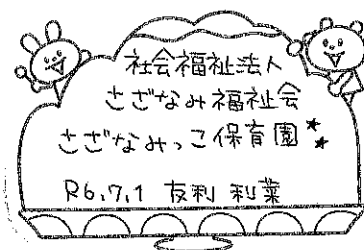 社会福祉法人
さざなみ福祉会
さざなみっこ保育園
R6.7.1 友利 利菜